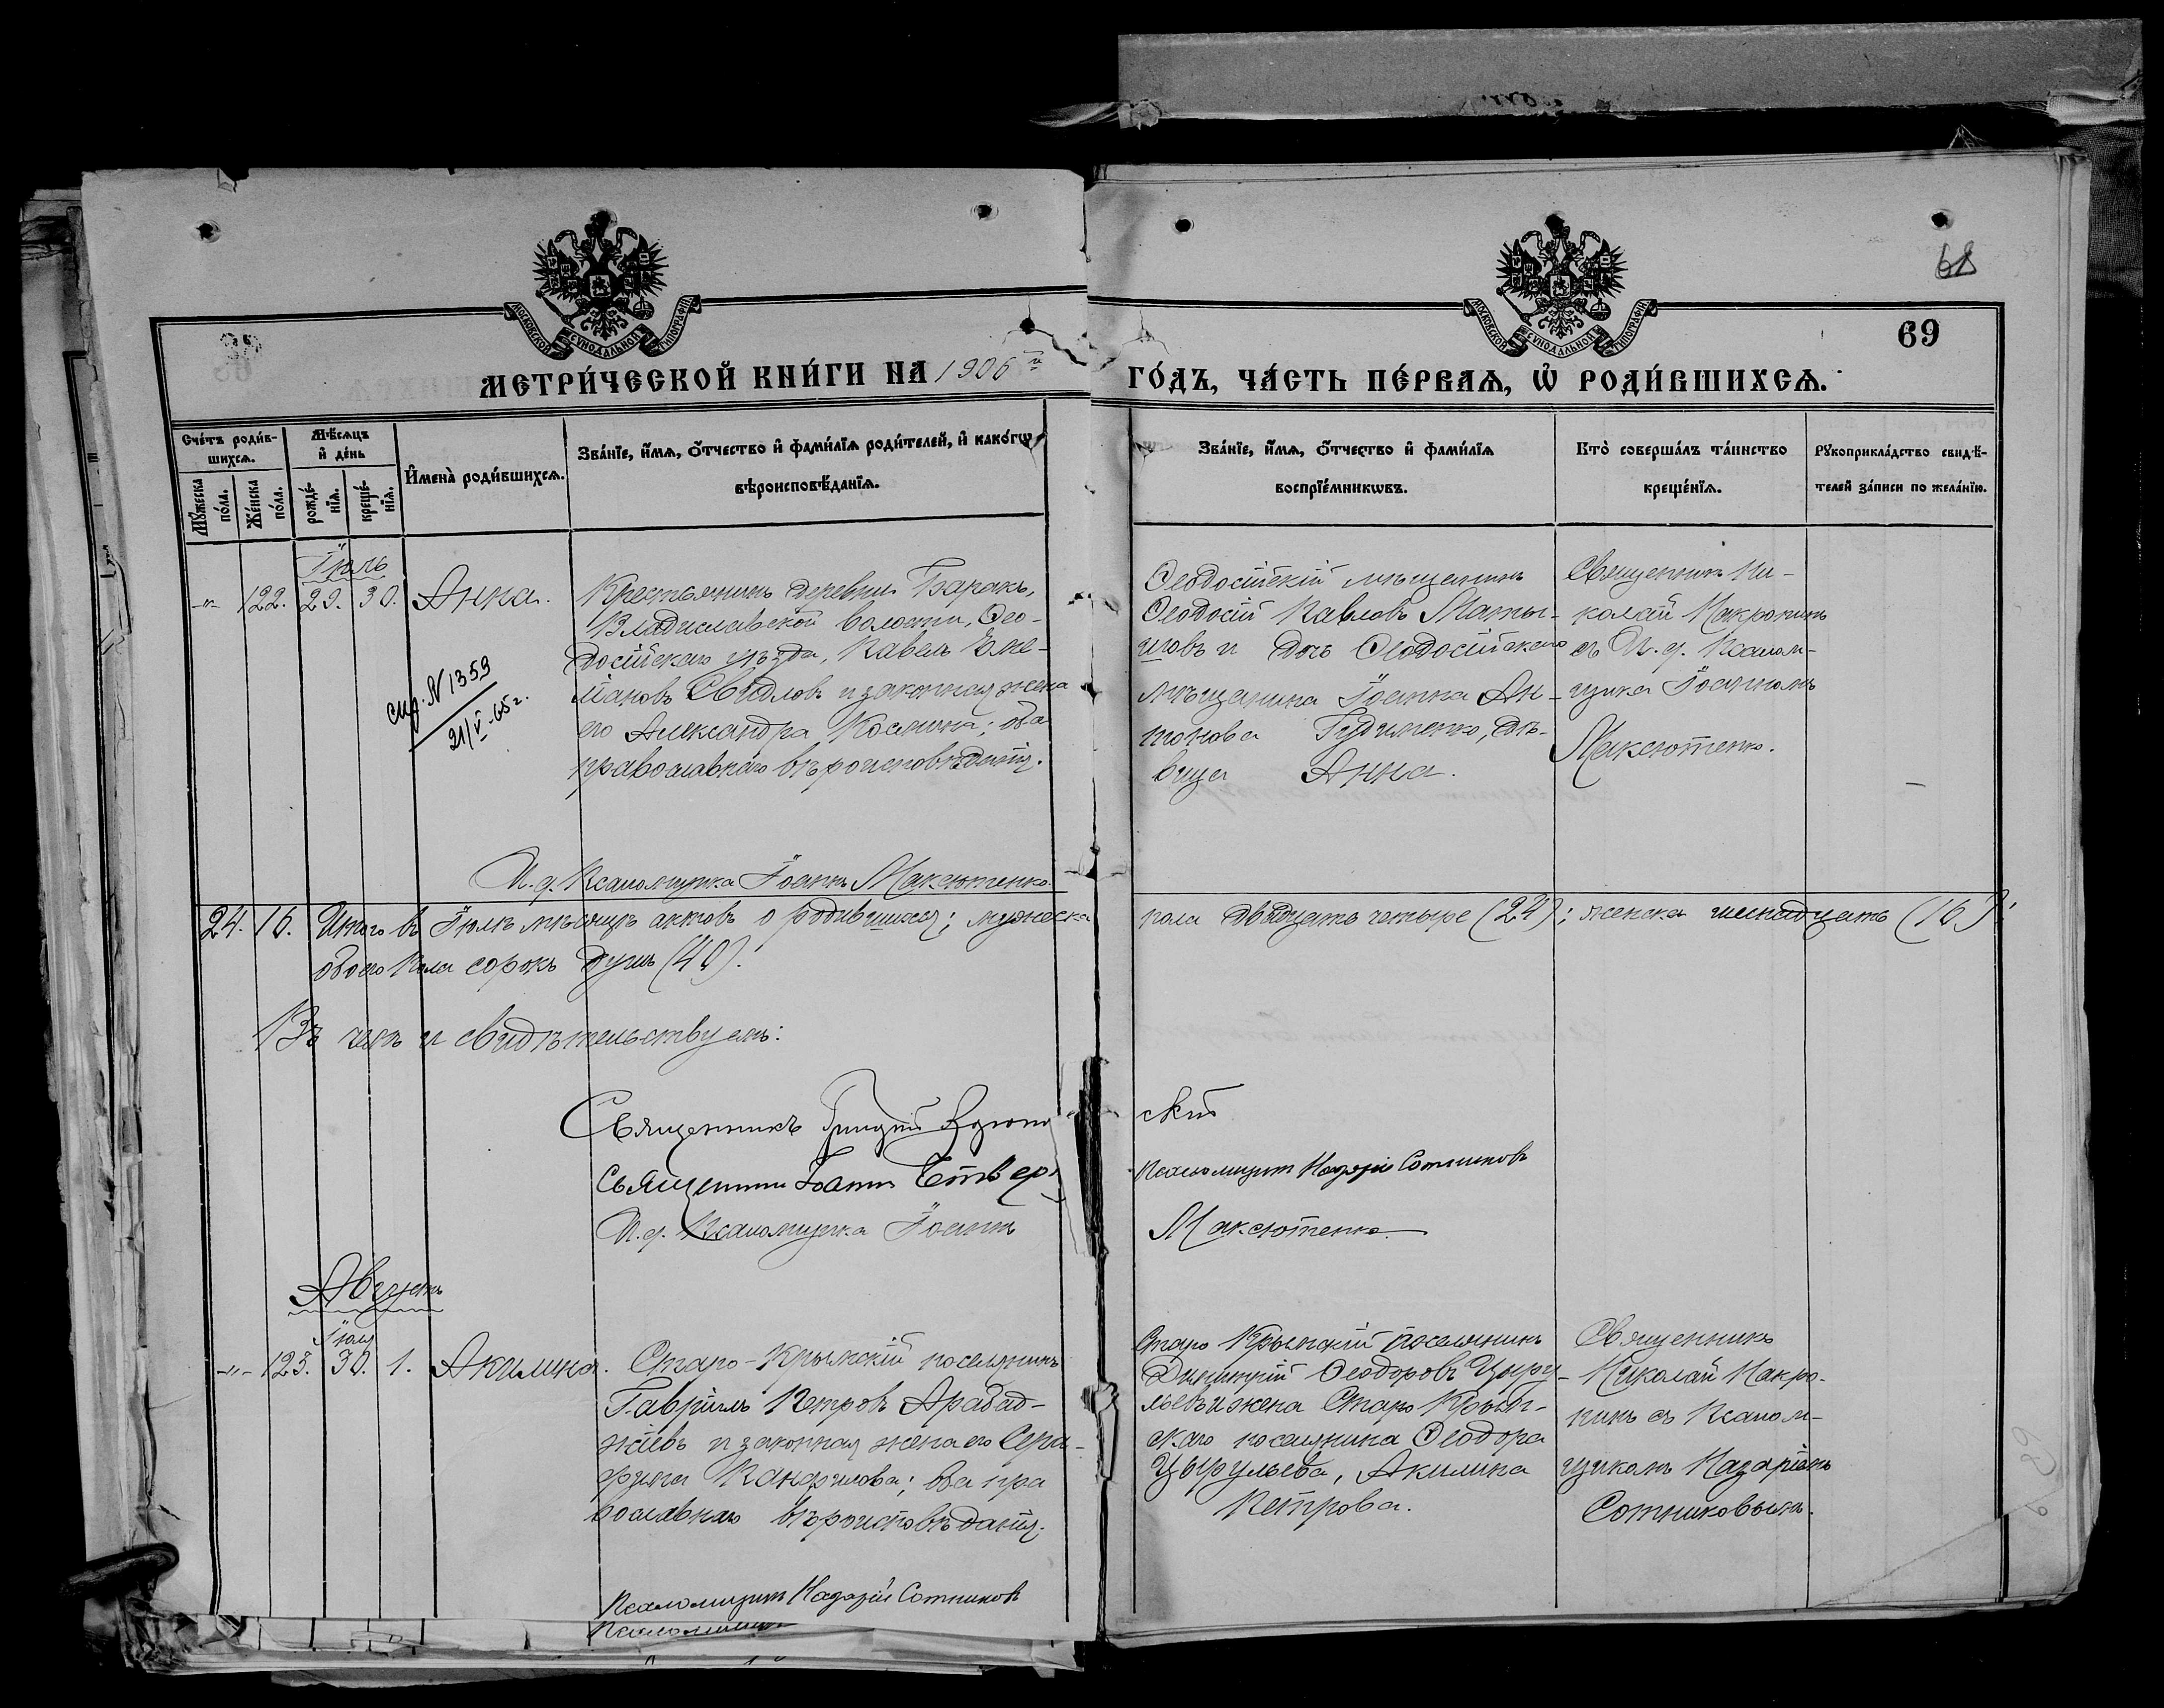 68
69
МОСКОВСКОЙ СѴНОДАЛЬНОЙ ТИПОГРАФІИ
МОСКОВСКОЙ СѴНОДАЛЬНОЙ ТИПОГРАФІИ
МЕТРИ́ЧЕСКОЙ КНИ́ГИ НА 1906й
ГО́ДЪ, ЧА́СТЬ ПЕ́РВАѦ, Ѡ҆ РОДИ́ВШИХСѦ.
Сче́тъ роди́в-
шихсѧ.
Мѣ́сѧцъ
и҆ де́нь
Мꙋ́жеска
по́ла.
Же́нска
по́ла.
рожде́-
нїѧ.
креще́-
нїѧ.
И҆мена̀ роди́вшихсѧ.
Зва́нїе, и҆́мѧ, ѻ҆́тчество и҆ фами́лїѧ роди́телей, и҆ како́гѡ
вѣроисповѣ́данїѧ.
Зва́нїе, и҆́мѧ, ѻ҆́тчество и҆ фами́лїѧ
воспрїе́мникѡвъ.
Кто̀ соверша́лъ та́инство
креще́нїѧ.
Рꙋкоприкла́дство свидѣ́-
телей за́писи по жела́нїю.
Іюль
-"- 122. 29. 30. Анна.
Крестьянинъ деревни Баракъ,
Владиславской волости, Ѳео-
досійскаго уѣзда, Павелъ Еме-
ліановъ Свидловъ и законная жена
его Александра Косьмина; оба
православнаго вѣроисповѣданія.
N 1359
21/V-65 г.
Ѳеодосійскій мѣщанинъ
Ѳеодосій Павловъ Маты-
цовъ и дочь Ѳеодосійскаго
мѣщанина Іоанна Ан-
тонова Гудименко, дѣ-
вица Анна.
Священникъ Ни-
колай Макропинъ
съ И. д. Псалом-
щика Іоанномъ
Максютенко.
И. д. Псаломщика Іоаннъ Максютенко.
24. 16. Итого въ Іюлѣ мѣсяцѣ актовъ о родившихся; мужеска
пола двадцать четыре (24); женска шестнадцать (16);
обоего пола сорокъ душъ (40).
Въ чемъ и свидѣтельствуемъ:
Священникъ
скій
Священникъ Іоаннъ
Псаломщикъ Назарій Сотниковъ
И. д. Псаломщика Іоаннъ
Максютенко
Августъ
Іюля
-"- 123. 30. 1. Акилина.
Старо-Крымскій поселянинъ
Гавріилъ Петровъ Арабад-
жіевъ и законная жена его Сера-
фима Канфилова; оба пра
вославнаго вѣроисповѣданія.
Старо Крымскій поселянинъ
Димитрій Ѳеодоровъ Цыру-
льевъ и жена Старо Крым-
скаго поселянина Ѳеодора
Цырульева, Акилина
Петрова.
Священникъ
Николай Макро-
пинъ съ Псалом-
щикомъ Назаріемъ
Сотниковымъ.
Псаломщикъ Назарій Сотниковъ
Псаломщикъ